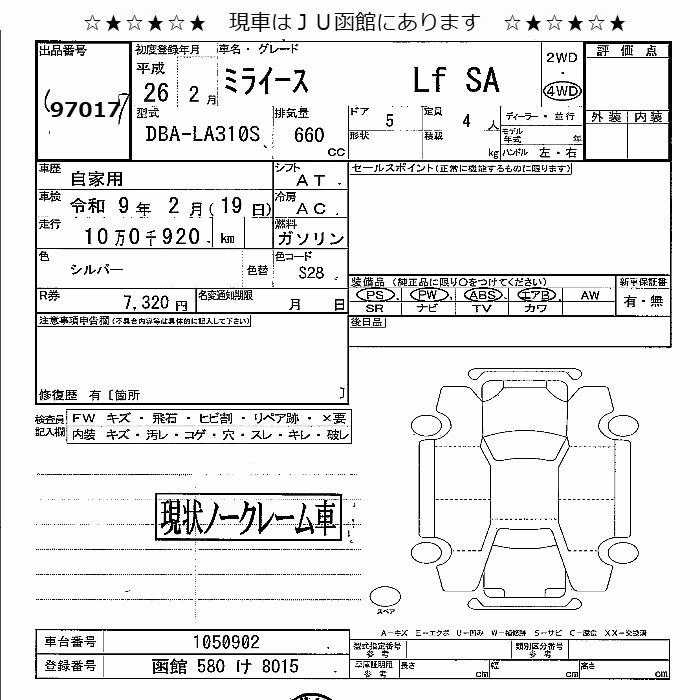 ☆★☆★☆★　現車はＪＵ函館にあります　☆★☆★☆★
出品番号 初度登録年月 車名・グレード 評価点
97017 平成 26 2月 ミライース Lf SA 2WD ・ 4WD
外装 内装
型式 排気量 ドア 5 定員 4人 ディーラー・並行
DBA-LA310S 660 CC 形状 積載 kg モデル年式 年
ハンドル 左・右
車歴 自家用 シフト AT セールスポイント(正常に機能するものに限ります)
車検 令和 9年 2月(19日) 冷房 AC
走行 10万0千920 km 燃料 ガソリン
色 シルバー 色替 色コード S28
装備品 (純正品に限り○をつけてください) 新車保証書
R券 7,320円 名変通知期限 月 日 PS PW ABS エアB AW 有・無
SR ナビ TV カワ
注意事項申告欄(不具合内容等は具体的に記入して下さい) 後日品
修復歴 有〔箇所 〕
検査員記入欄 FW キズ・飛石・ヒビ割・リペア跡・×要
内装 キズ・汚レ・コゲ・穴・スレ・キレ・破レ
現状ノークレーム車
スペア
A－キズ E－エクボ U－凹み W－補修跡 S－サビ C－腐食 XX－交換済
車台番号 1050902 型式指定番号 参考 類別区分番号 参考
登録番号 函館 580 け 8015 車庫証明用 参考 長さ cm 幅 cm 高さ cm